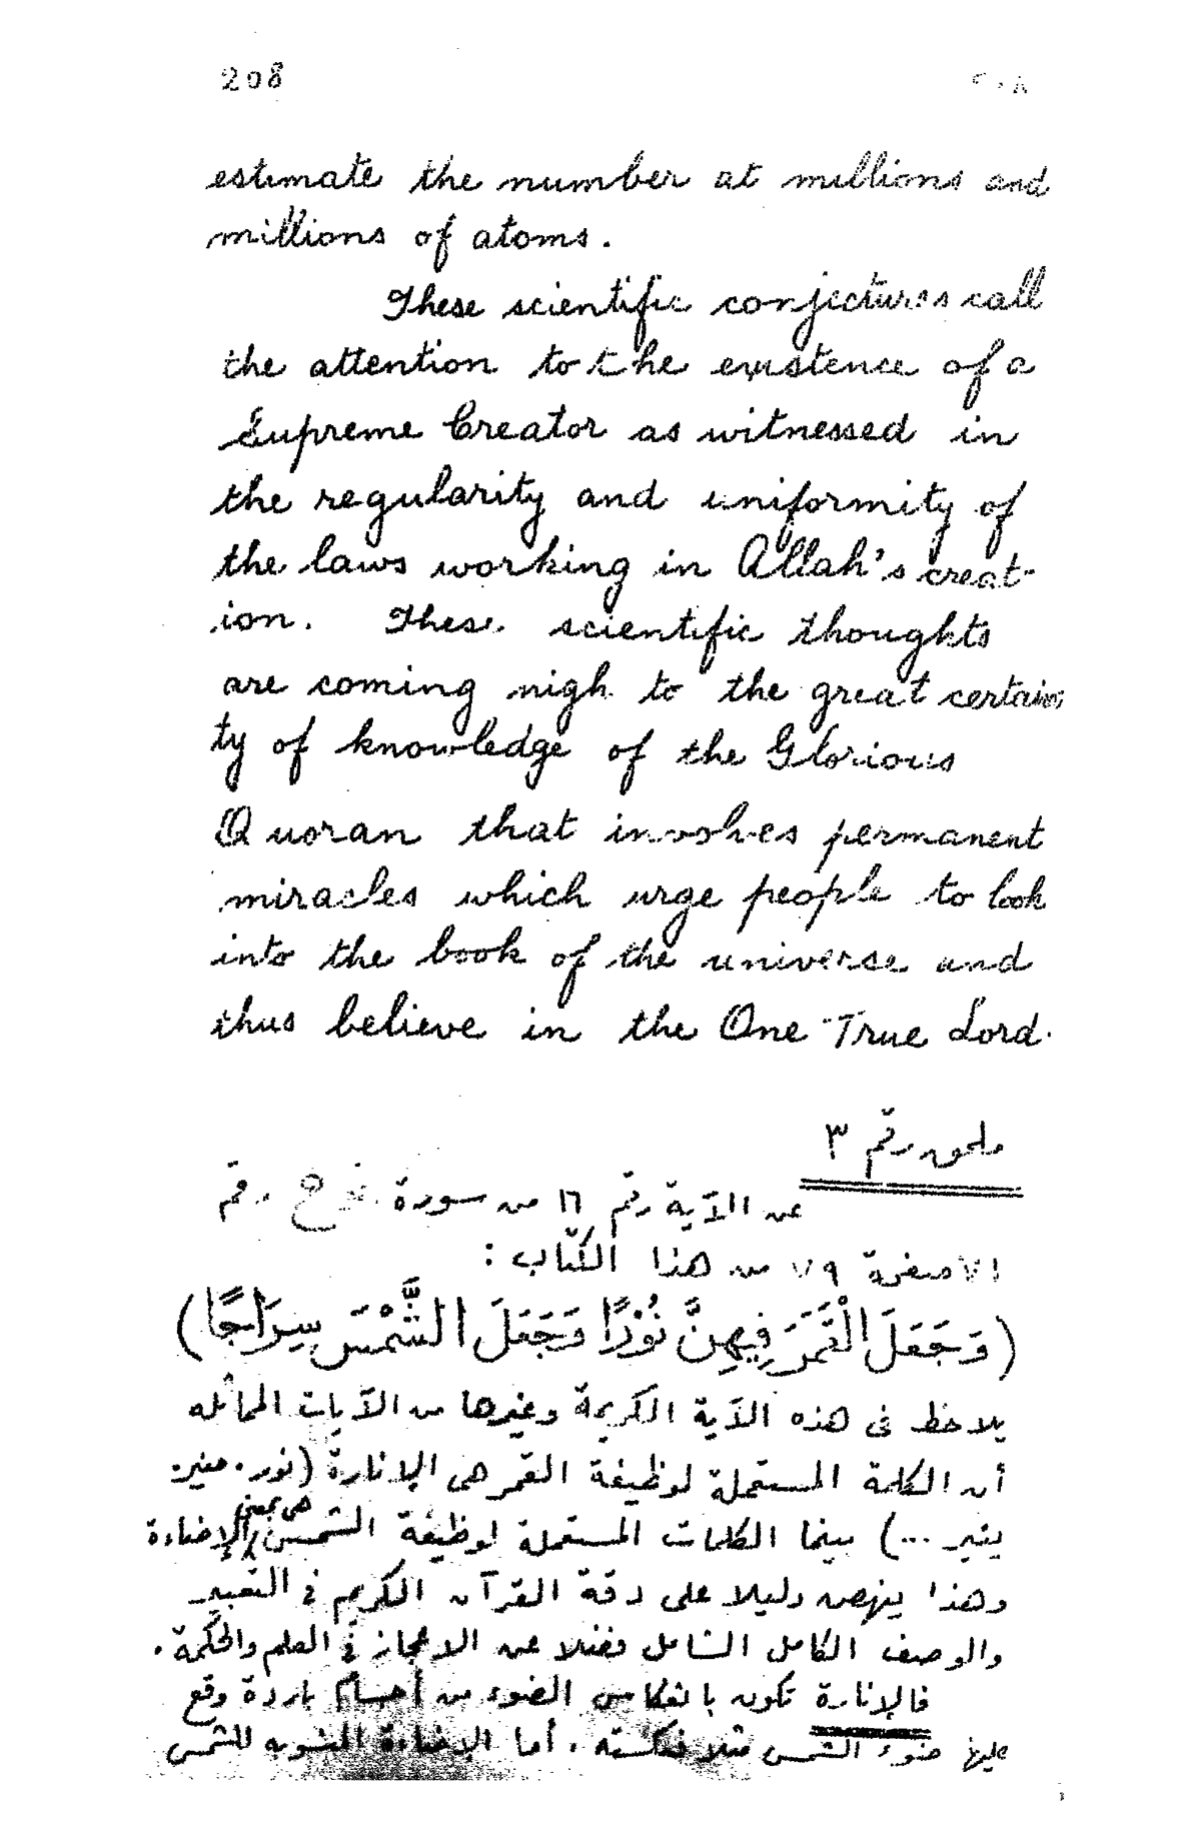 208 ٢٠٨
estimate the number at millions and
millions of atoms.
These scientific conjectures call
the attention to the existence of a
Supreme Creator as witnessed in
the regularity and uniformity of
the laws working in Allah's creat-
ion. These scientific thoughts
are coming nigh to the great certain
ty of knowledge of the Glorious
Quoran that involves permanent
miracles which urge people to look
into the book of the universe and
thus believe in the One True Lord.
ملحق رقم ٣
عن الآية رقم ١٦ من سورة نوح رقم
الصفحة ٧٩ من هذا الكتاب :
(وَجَعَلَ الْقَمَرَ فِيهِنَّ نُوْرًا وَجَعَلَ الشَّمْسَ سِرَاجًا)
يلاحظ فى هذه الآية الكريمة وغيرها من الآيات المماثله
أن الكلمة المستعملة لوظيفة القمر هى الإنارة (نور. منير.
ينير ...) بينما الكلمات المستعملة لوظيفة الشمس هى بمعنى الإضاءة
وهذا ينهض دليلا على دقة القرآن الكريم فى التعبير
والوصف الكامل الشامل فضلا عن الاعجاز فى العلم والحكمة.
فالإنارة تكون بانعكاس الضوء من أجسام باردة وقع
عليها ضوء الشمس مثلا فعكسته . أما الإضاءة للشمس